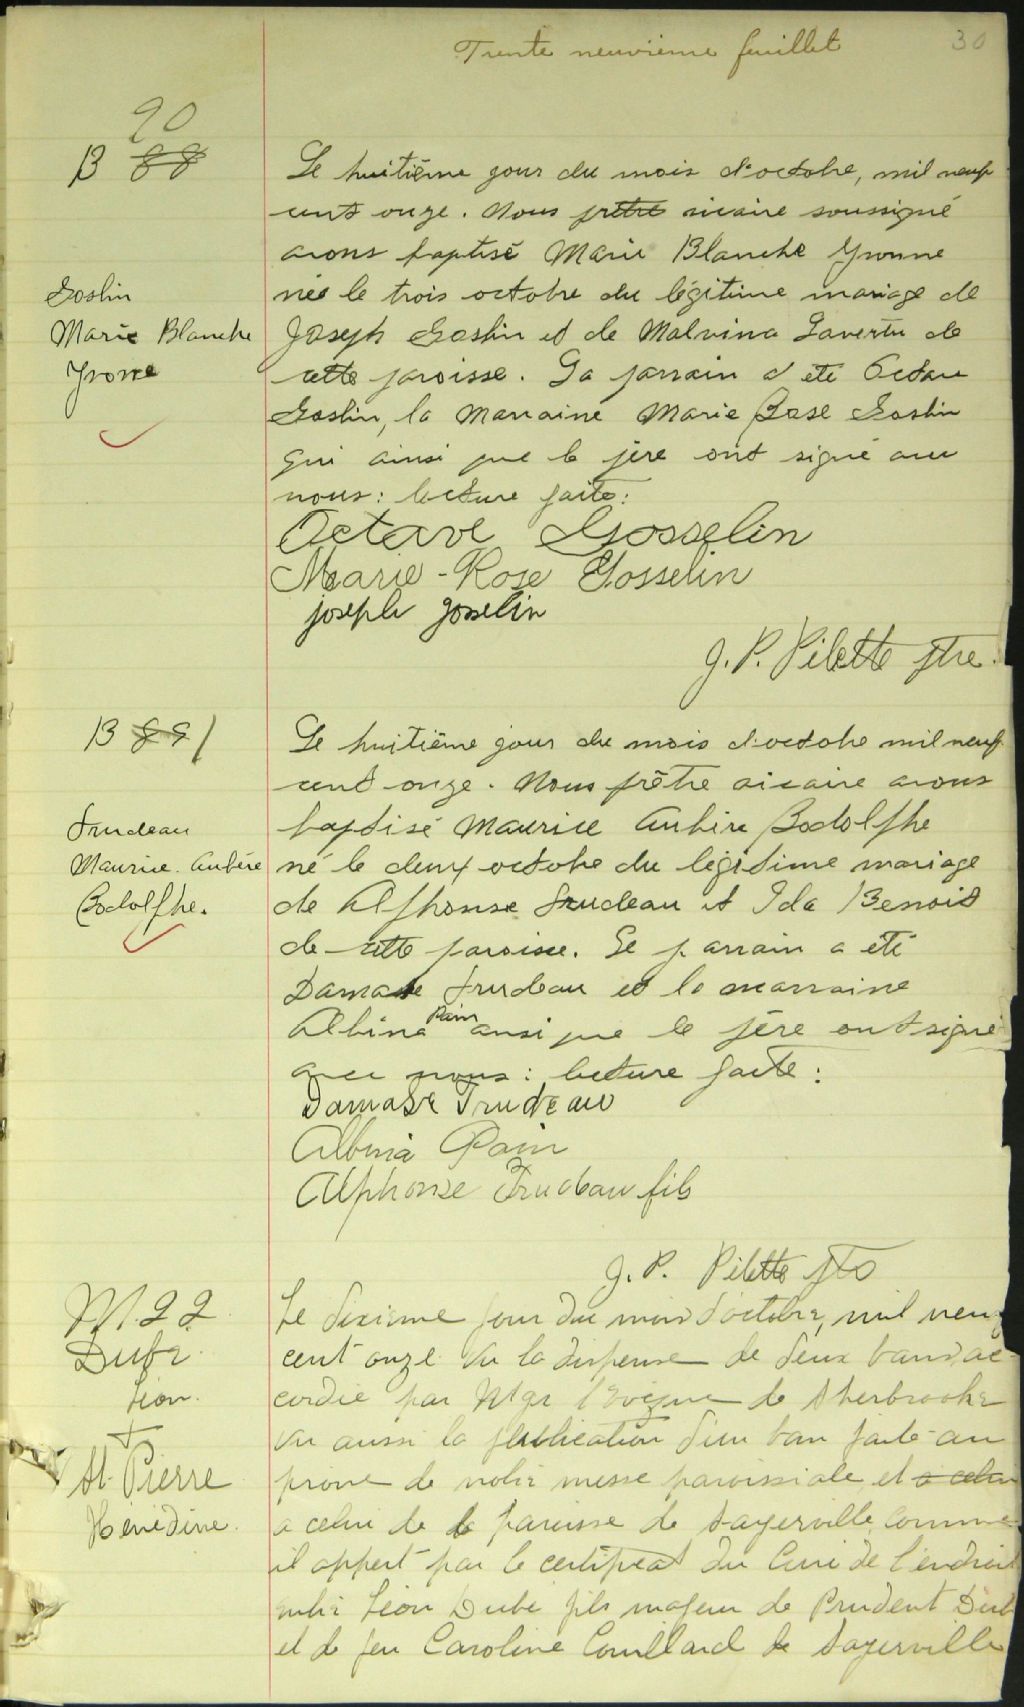 Trente neuvième feuillet
30
90
B 88
Goslin
Marie Blanche
Yvonne
Le huitième jour du mois d'octobre, mil neuf
cent onze. Nous prêtre vicaire soussigné
avons baptisé Marie Blanche Yvonne
née le trois octobre du légitime mariage de
Joseph Goslin et de Malvina Lavertu de
cette paroisse. La parrain a été Octave
Goslin, la marraine Marie Rose Goslin
qui ainsi que le père ont signé avec
nous: lecture faite:
Octave Gosselin
Marie-Rose Gosselin
joseph gosselin
J. P. Pilette ptre.
B 89 1
Trudeau
Maurice. Aubire
Rodolphe.
Le huitième jour du mois d'octobre mil neuf
cent onze. Nous prêtre vicaire avons
baptisé Maurice Aubire Rodolphe
né le deux octobre du légitime mariage
de Alphonse Trudeau et Ida Benoit
de cette paroisse. Le parrain a été
Damase Trudeau et la marraine
Albina Pain ainsi que le père ont signé
avec nous: lecture faite:
Damase Trudeau
Albina Pain
Alphonse Trudeau fils
J. P. Pilette ptre
M. 22
Dubé
Léon.
+
St-Pierre
Hénédine.
Le dixième jour du mois d'octobre, mil neuf
cent onze vu la dispense de deux bans ac-
cordée par Mgr l'Evêque de Sherbrooke
vu aussi la publication d'un ban faite au
prône de notre messe paroissiale, et à celui
a celui de la paroisse de Sayerville comme
il appert par le certificat du Curé de l'endroit
entre Léon Dubé fils majeur de Prudent Dubé
et de feu Caroline Couillard de Sayerville